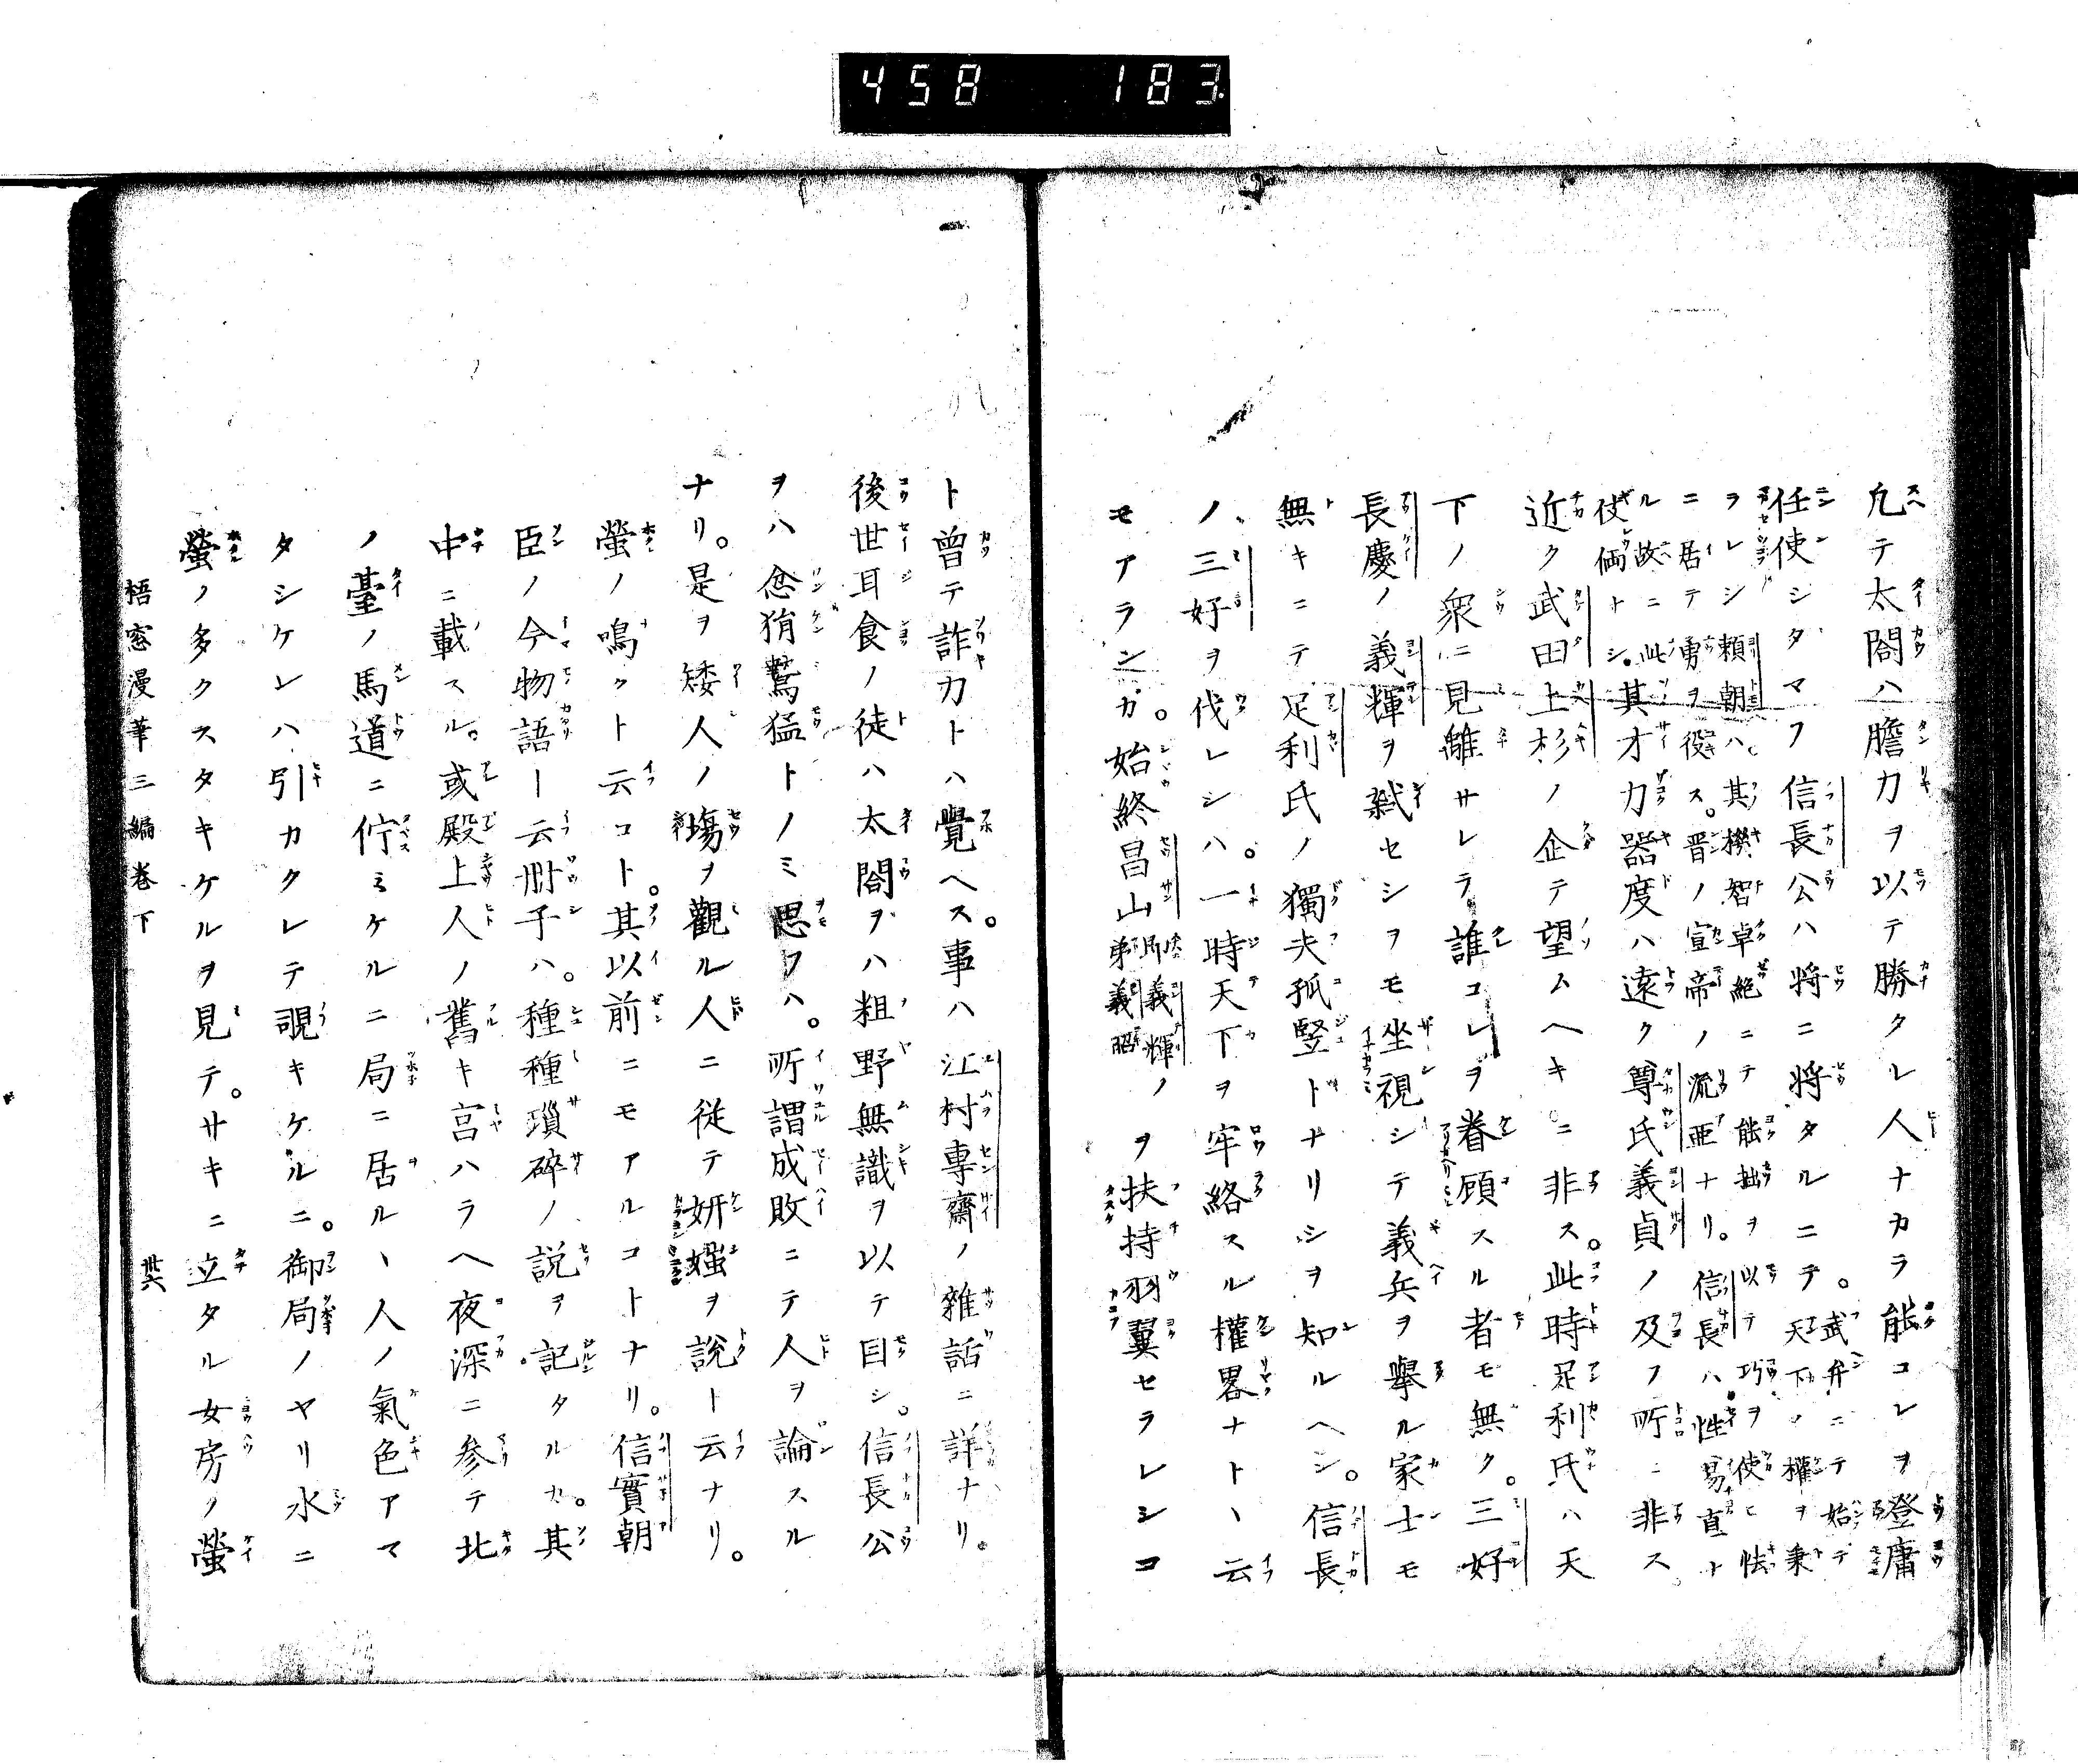 458 183
凢テ太閤ハ膽力ヲ以テ勝タルレ人ナカラ能コレヲ登庸
任使シタマフ信長公ハ将ニ将タルニテ。武弁ニテ始テ天下ノ權ヲ秉
ヲレシ頼朝ハ其機智卓絶ニテ能拙ヲ以テ巧ヲ使ヒ怯
ニ居テ勇ヲ役ス。晋ノ宣帝ノ流亜ナリ。信長ハ性易直ナ
ル故ニ此
使倆トシ。其才力器度ハ遠ク尊氏義貞ノ及フ所ニ非ス
近ク武田上杉ノ企テ望ムヘキニ非ス。此時足利氏ハ天
下ノ衆ニ見離サレテ誰コレヲ眷顧スル者モ無ク。三好
長慶ノ義輝ヲ弑セシヲモ坐視シテ義兵ヲ擧ル家士モ
無キニテ足利氏ノ獨夫孤竪トナリシヲ知ルヘシ。信長
ノ三好ヲ伐レシハ。一時天下ヲ牢絡スル權畧ナトヽ云
モアランカ。始終昌山即義輝ノ弟義昭ヲ扶持羽翼セラレシコ
ト曽テ詐力トハ覺ヘス。事ハ江村專齋ノ雜話ニ詳ナリ。
後世耳食ノ徒ハ太閤ヲハ粗野無識ヲ以テ目シ。信長公
ヲハ忿狷鷙猛トノミ思フハ。所謂成敗ニテ人ヲ論スル
ナリ。是ヲ矮人ノ塲ヲ觀ル人ニ従テ妍媸ヲ説ト云ナリ。
螢ノ鳴クト云コト。其以前ニモアルコトナリ。信實朝
臣ノ今物語ト云冊子ハ。種種瑣碎ノ説ヲ記タルカ。其
中ニ載スル。或殿上人ノ舊キ宮ハラヘ夜深ニ参テ北
ノ臺ノ馬道ニ佇ミケルニ局ニ居ルヽ人ノ氣色アマ
タシケレハ引カクレテ覗キケルニ。御局ノヤリ水ニ
螢ノ多クスタキケルヲ見テ。サキニ立タル女房ノ螢
梧窓漫筆三編巻下 卅六